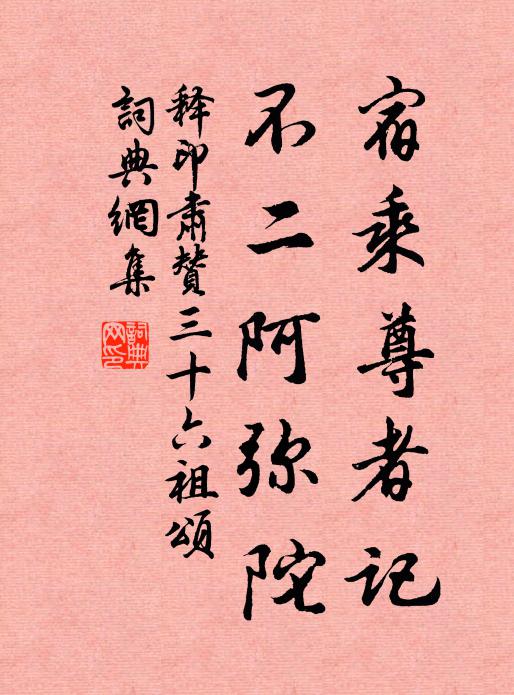 宿乘尊者记
不二阿弥陀
释印肃赞三十六祖颂
词典網集
詞典网印